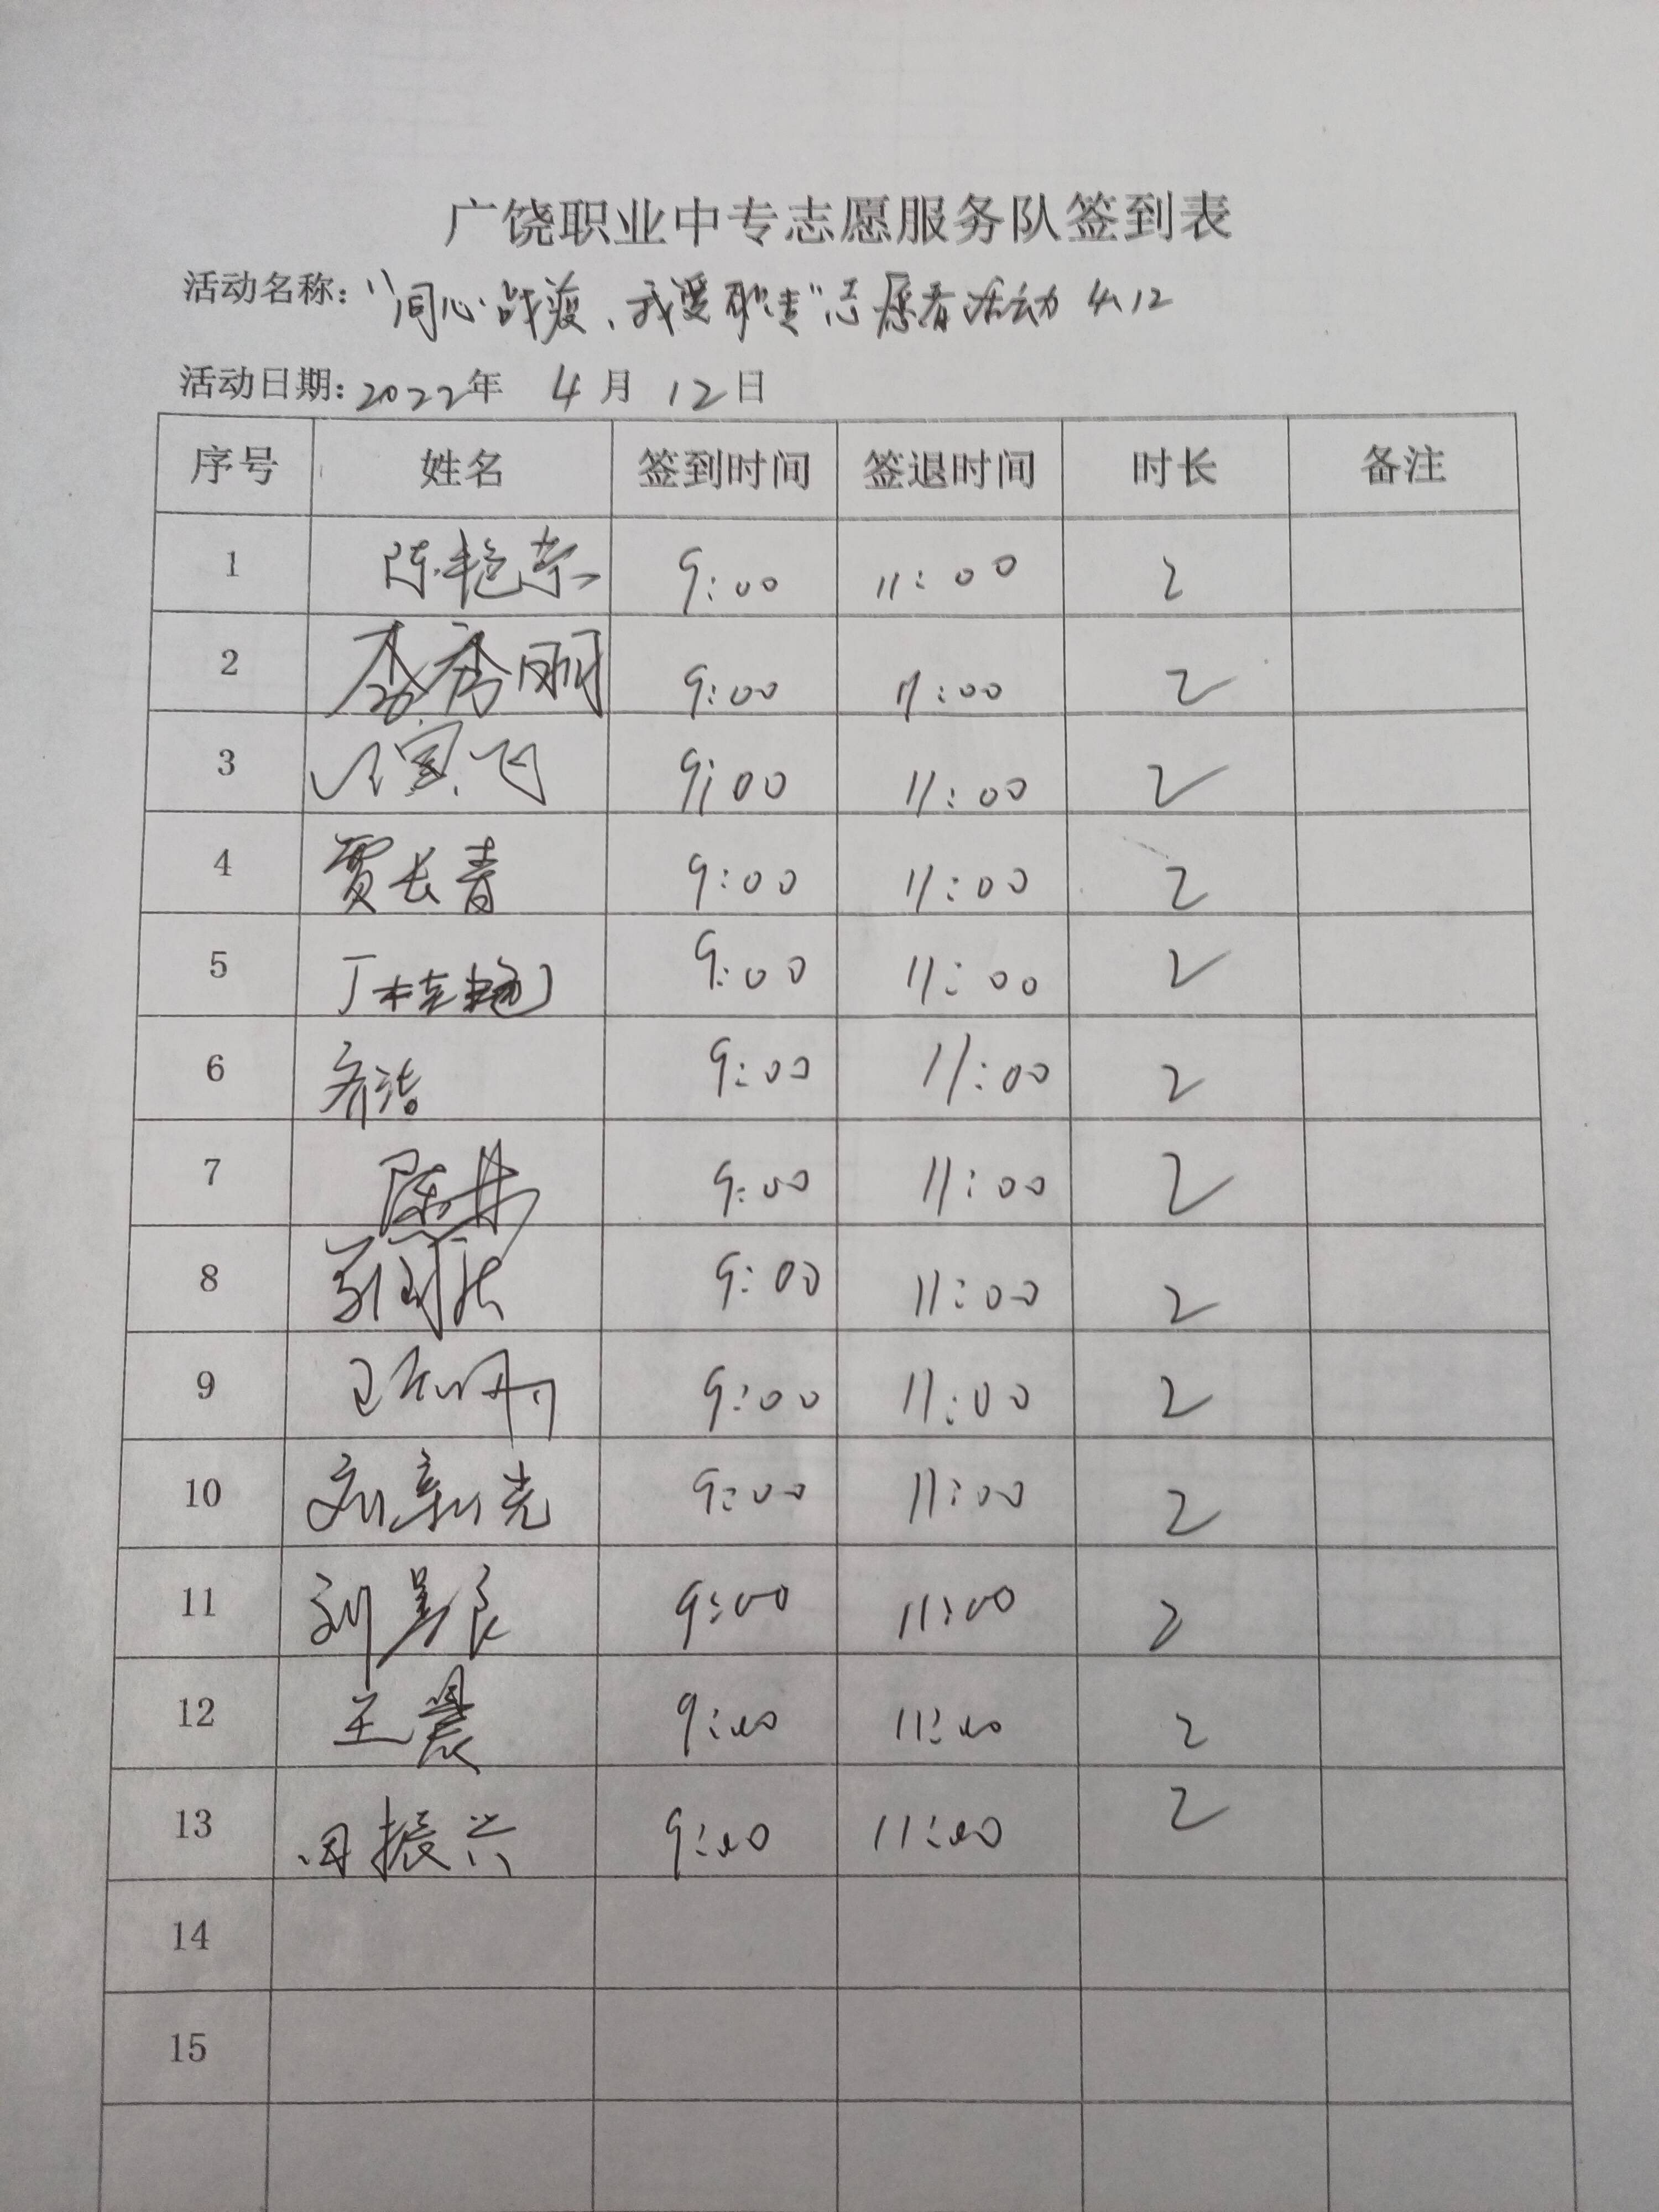 广饶职业中专志愿服务队签到表
活动名称："同心战疫、我爱职专"志愿者活动 4.12
活动日期：2022年 4月 12日
序号 姓名 签到时间 签退时间 时长 备注
1 陈艳荣 9:00 11:00 2
2 李秀丽 9:00 11:00 2
3 9:00 11:00 2
4 贾长青 9:00 11:00 2
5 9:00 11:00 2
6 齐洁 9:00 11:00 2
7 9:00 11:00 2
8 9:00 11:00 2
9 9:00 11:00 2
10 刘新光 9:00 11:00 2
11 刘景良 9:00 11:00 2
12 王晨 9:00 11:00 2
13 田振兴 9:00 11:00 2
14
15